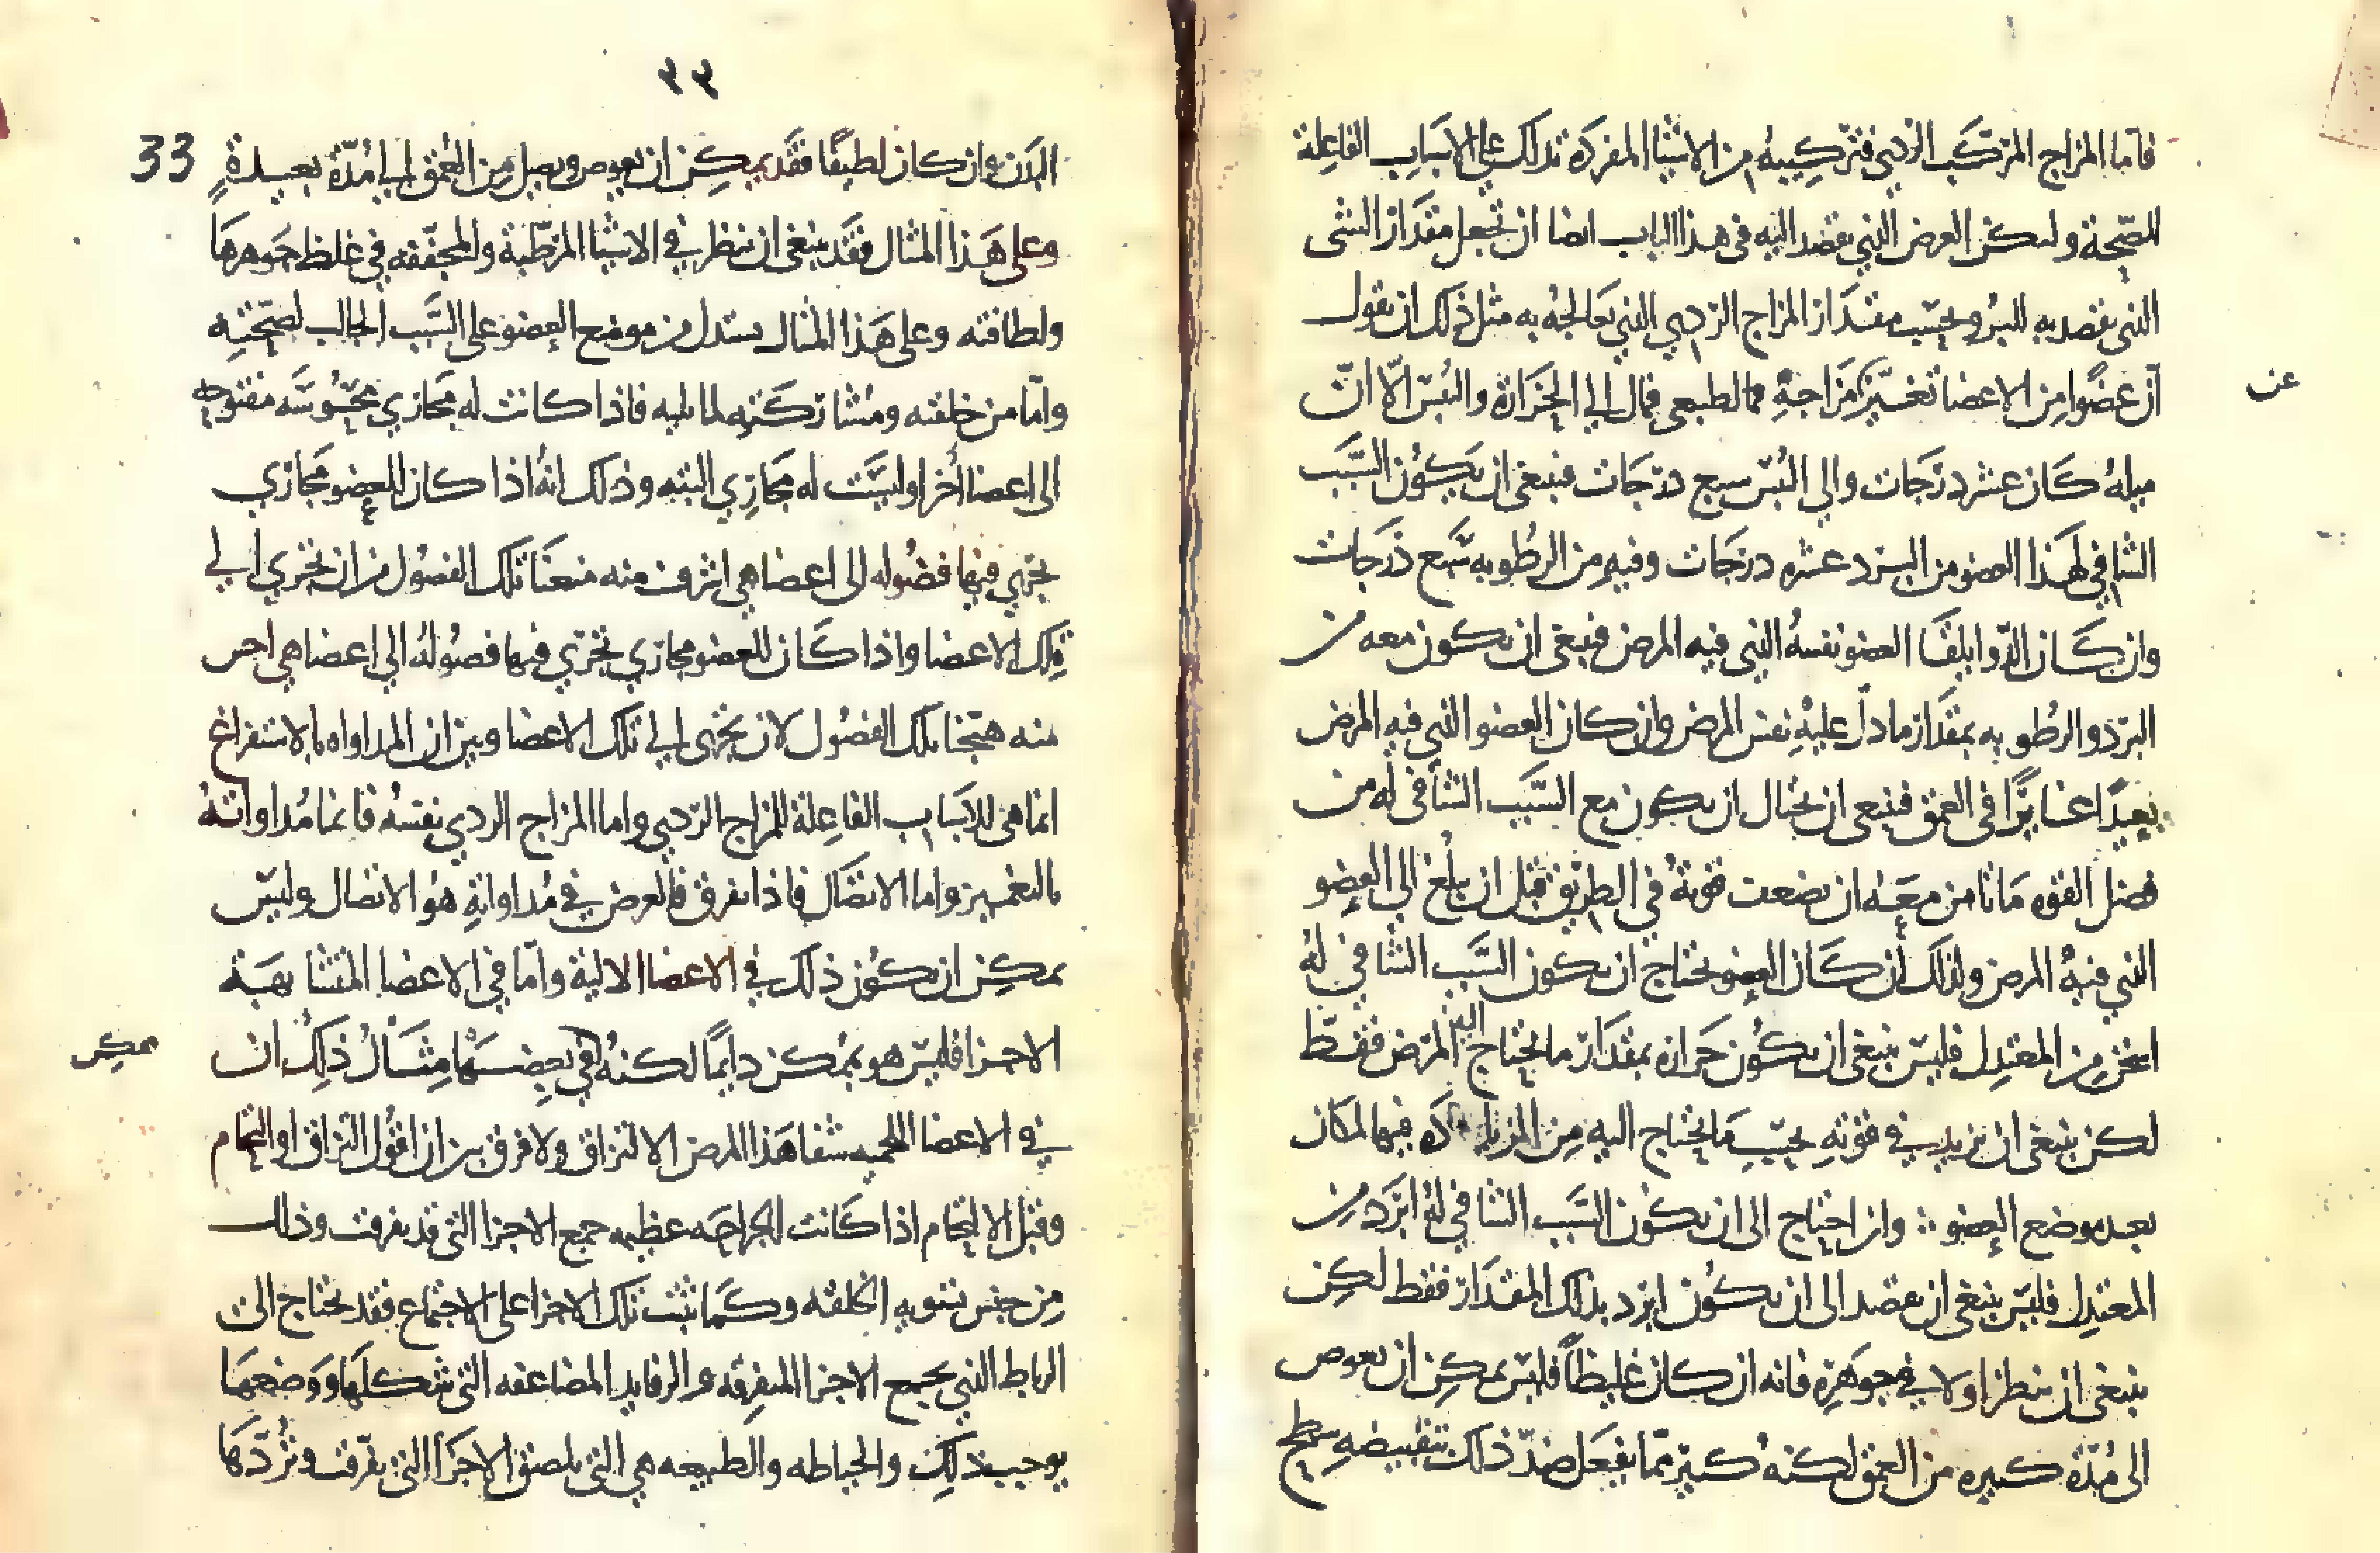 فاما المزاج المركب الردي فتركيبه من الاشيا المفردة تدلك على الاسباب الفاعلة
للصحة وليكن الغرض الذي تقصد اليه في هذا الباب ايضا ان تجعل مقدار الشى
الذي تقصد به للبرؤ بحسب مقدار المزاج الردي الذي تعالجه به مثل ذلك ان نقول
عن
ان عضوا من الاعضا تغير مزاجه الطبيعى فمال الي الحرارة واليبس الا ان
ميله كان عشر درجات والي اليبس سبع درجات فينبغى ان يكون السبب
الشافي لهذا العضو من البرد عشره درجات وفيه من الرطوبه سبع درجات
وان كان الدوا يلقا العضو نفسه الذي فيه المرض فينبغى ان يكون معه من
البرد والرطوبه بمقدار ما دل عليه نفس المرض وان كان العضو الذي فيه المرض
بعيدا غايرا في العمق فينبغى ان يحتال ان يكون مع السبب الشافى له من
فضل القوه مانا من معه ان تضعف قوته في الطريق قبل ان يبلغ الي العضو
الذي فيه المرض ولذلك ان كان العضو يحتاج ان يكون السبب الشافي له
اسخن من المعتدل فليس ينبغى ان يكون حراره بمقدار ما يحتاج اليه المرض فقط
لكن ينبغى ان يزيد في قوته بحسب ما يحتاج اليه من الزيادة فيها لمكان
بعد موضع العضو ؞ وان احتاج الى ان يكون السبب الشافي له ابرد من
المعتدل فليس ينبغى ان يقصد الى ان يكون ابرد بذلك المقدار فقط لكن
ينبغى ان ينظر اولا في جوهره فانه ان كان غليظا فليس يمكن ان يغوص
الى مدة كبيره من العمق لكنه كثير مما يفعل ضد ذلك بتقبيضه سطح
٣٣
33
البدن وان كان لطيفا فقد يمكن ان يغوص ويصل من العمق الي مدة بعيدة
وعلى هذا المثال فقد ينبغى ان ينظر في الاشيا المرطبة والمجففه في غلظ جوهرها
ولطافته وعلى هذا المثال يستدل من موضع العضو على السبب الجالب لصحته
واما من خلقته ومشاركته لما يليه فاذا كانت له مجاري محسوسه مفتوحه
الى اعضا اخر او ليست له مجاري البته وذلك انه اذا كان للعضو مجاري
يجري فيها فضوله الى اعضا هي اشرف منه منعنا تلك الفضول من ان تجري الي
تلك الاعضا واذا كان للعضو مجاري تجري فيها فضوله الي اعضا هي اخس
منه هيجنا تلك الفضول لان يجرى الي تلك الاعضا وبين ان المداواه بالاستفراغ
انما هي للاسباب الفاعلة للمزاج الردي واما المزاج الردي نفسه فانما مداواته
بالتغيير واما الاتصال فاذا تفرق فالغرض في مداواته هو الاتصال وليس
يمكن ان يكون ذلك في الاعضا الالية واما في الاعضا المتشابهة
الاجزا فليس هو بممكن دايما لكنه في بعضها مثال ذلك ان
يمكن
في الاعضا اللحميه شفا هذا المرض الالتزاق ولا فرق بين ان اقول التزاق او التحام
وقبل الالتحام اذا كانت الجراحه عظيمه جمع الاجزا التي قد تفرقت وذلك
من جنس تسويه الخلقه وكما تثبت تلك الاجزا على الاجتماع فقد تحتاج الى
الرباط الذي يجمع الاجزا المتفرقه والرفايد المضاعفه التي شكلها ووضعها
يوجب ذلك والخياطه والطبيعه هي التي تلصق الاجزا التي تفرقت وتردها